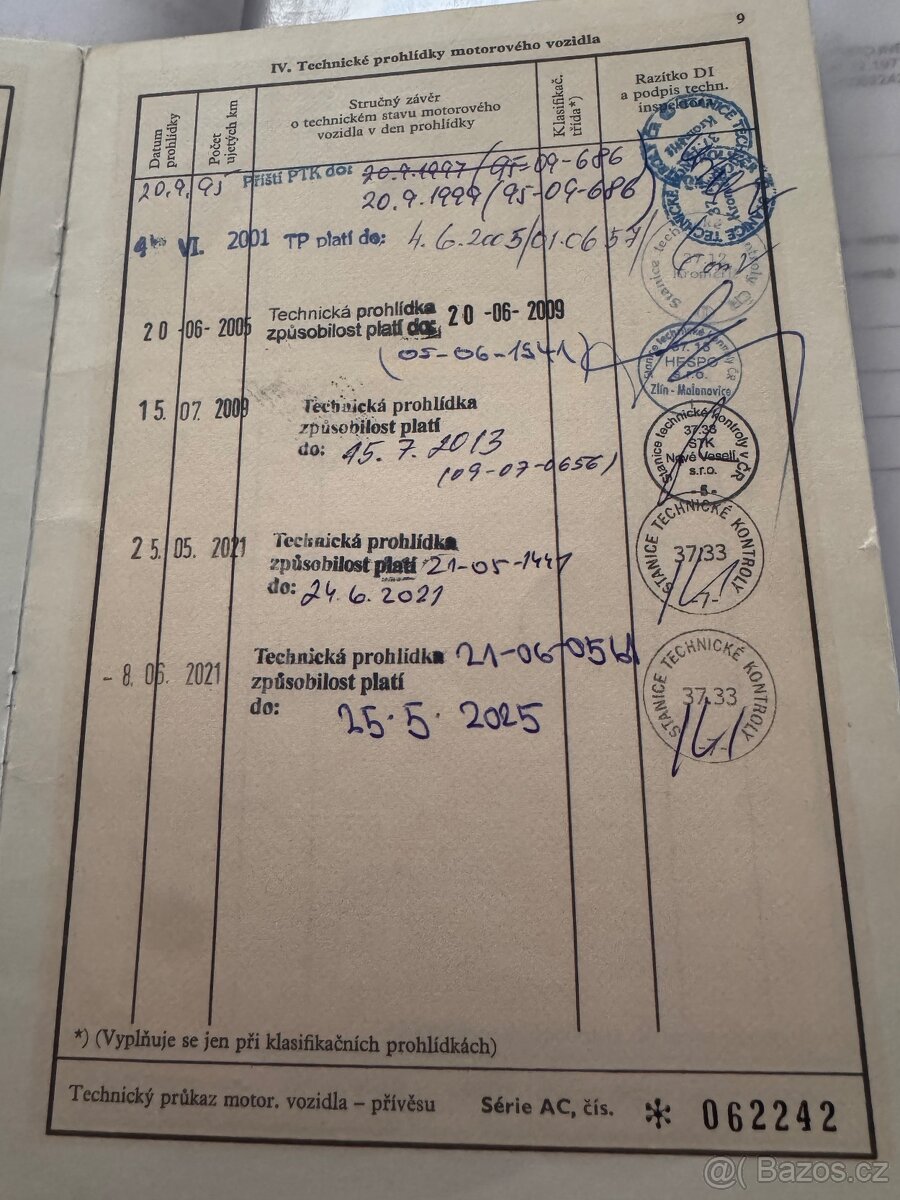 9
IV. Technické prohlídky motorového vozidla
Datum prohlídky
Počet ujetých km
Stručný závěr
o technickém stavu motorového
vozidla v den prohlídky
Klasifikač.
třída*)
Razítko DI
a podpis techn.
inspektora
20.9.95 Příští PTK do: 20.9.1997 (95-09-686
20.9.1999 (95-09-686)
VI. 2001 TP platí do: 4.6.2005/01.0657/
20-06-2005 Technická prohlídka
způsobilost platí do: 20-06-2009
(05-06-1541)
15. 07. 2009 Technická prohlídka
způsobilost platí
do: 15.7.2013
(09-07-0656)
25. 05. 2021 Technická prohlídka
způsobilost platí 21-05-1441
do: 24.6.2021
- 8. 06. 2021 Technická prohlídka 21-06-0561
způsobilost platí
do: 25.5.2025
HESPO
s.r.o.
Zlín-Malenovice
Stanice technické kontroly v ČR
37.33
STK
Nové Veselí
s.r.o.
- 5 -
STANICE TECHNICKÉ KONTROLY
37.33
-7-
STANICE TECHNICKÉ KONTROLY
37.33
-7-
*) (Vyplňuje se jen při klasifikačních prohlídkách)
Technický průkaz motor. vozidla – přívěsu Série AC, čís. * 062242
@( Bazos.cz